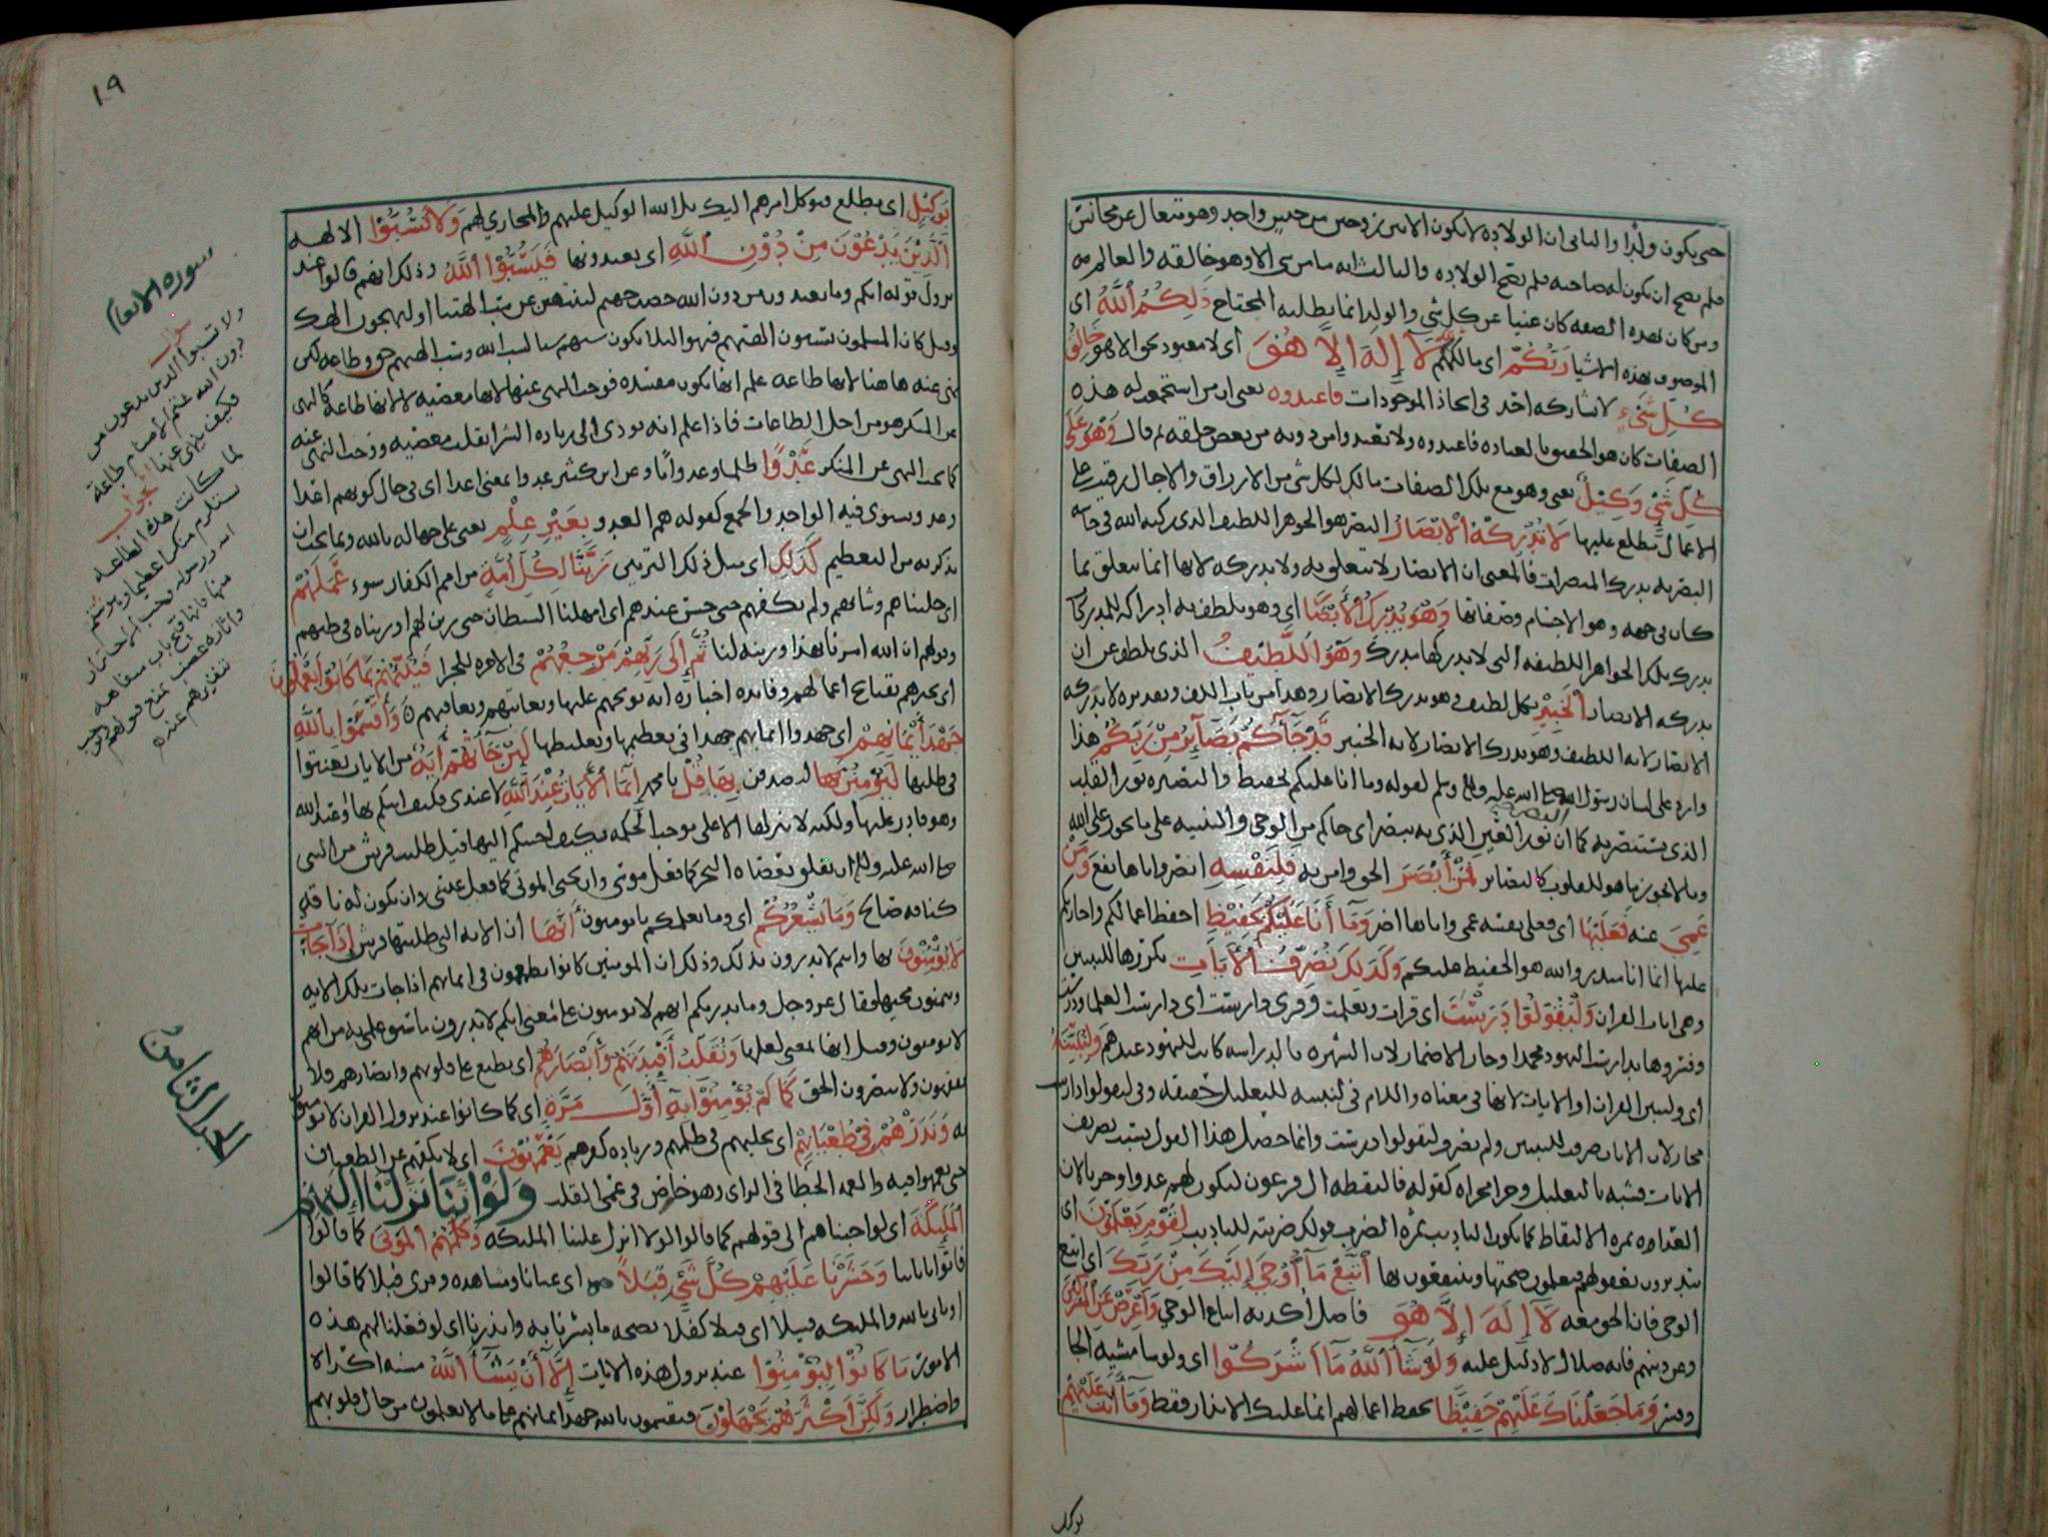 حتى يكون ولدا والثاني ان الولادة لا تكون الا من زوجين من جنس واحد وهو متعال عن مجانس
فلم يصح ان يكون له صاحبة فلم تصح الولادة والثالث انه ما من شي الا وهو خالقه والعالم به
ومن كان بهذه الصفة كان غنيا عن كل شي والولد انما يطلبه المحتاج ذَلِكُمُ اللَّهُ اى
الموصوف بهذه الاشيا رَبُّكُمْ اى مالككم لَا إِلَهَ إِلَّا هُوَ اى لا معبود بحق الا هو خَالِقُ
كُلِّ شَيْءٍ لا يشاركه احد في ايجاد الموجودات فاعبدوه يعنى ان من استجمعت له هذه
الصفات كان هو الحقيق بالعبادة فاعبدوه ولا تعبدوا من دونه من بعض خلقه ثم قال وَهُوَ عَلَى
كُلِّ شَيْءٍ وَكِيلٌ يعنى وهو مع تلك الصفات مالك لكل شى من الارزاق والاجال رقيب على
الاعمال مطلع عليها لَا تُدْرِكُهُ الْأَبْصَارُ البصر هو الجوهر اللطيف الذى ركبه الله في حاسة
البصر به يدرك المبصرات فالمعنى ان الابصار لا تتعلق به ولا تدركه لانها انما تتعلق بما
كان في جهة وهو الاجسام وصفاتها وَهُوَ يُدْرِكُ الْأَبْصَارَ اى وهو بلطف به ادراكه للمدركات
يدرك تلك الجواهر اللطيفة التى لا يدركها مدرك وَهُوَ اللَّطِيفُ الذى يلطف عن ان
يدركه الابصار الْخَبِيرُ بكل لطيف وهو يدرك الابصار وهذا من باب اللف وتقديره لا تدركه
الابصار لانه اللطيف وهو يدرك الابصار لانه الخبير قَدْ جَاءَكُمْ بَصَائِرُ مِنْ رَبِّكُمْ هذا
وارد على لسان رسول الله صلى الله عليه وسلم لقوله وما انا عليكم بحفيظ والبصيرة نور القلب
الذى يستبصر به كما ان البصر نور العين الذى به تبصر اى جاكم من الوحى والتنبيه على ما يجوز على الله
وما لا يجوز ما هو للقلوب كالبصائر فَمَنْ أَبْصَرَ الحق وامن به فَلِنَفْسِهِ ابصر واياها نفع وَمَنْ
عَمِيَ عنه فَعَلَيْهَا اى فعلى نفسه عمى واياها اضر وَمَا أَنَا عَلَيْكُمْ بِحَفِيظٍ احفظ اعمالكم واجازيكم
عليها انما انا منذر والله هو الحفيظ عليكم وَكَذَلِكَ نُصَرِّفُ الْآيَاتِ نكررها للتبيين
وهى ايات القران وَلِيَقُولُوا دَرَسْتَ اى قرات وتعلمت وقرى دارست اى دارست العلما ودرست
وفسروها بدارست اليهود محمدا وجاز الاضمار لان الشهرة بالدراسة كانت لليهود عندهم وَلِنُبَيِّنَهُ
اى ولنبين القران او الايات لانها في معناه واللام في لنبينه للتعليل حقيقة وفى ليقولوا دارست
مجاز لان الايات صرفت للتبيين ولم تصرف ليقولوا درست وانما حصل هذا القول بسبب تصريف
الايات فشبه بالتعليل وجرا مجراه كقوله فالتقطه ال فرعون ليكون لهم عدوا وحزنا لان
العداوة ثمرة الالتقاط كما يكون التاديب ثمرة الضرب في قولك ضربته للتاديب لِقَوْمٍ يَعْلَمُونَ اى
يتدبرون بعقولهم فيعلمون صحتها وينتفعون بها اتَّبِعْ مَا أُوحِيَ إِلَيْكَ مِنْ رَبِّكَ اى اتبع
الوحى فان الحق معه لَا إِلَهَ إِلَّا هُوَ فاصل اكد به اتباع الوحي وَأَعْرِضْ عَنِ الْمُشْرِكِينَ
وعن دينهم فانه ضلال لا دليل عليه وَلَوْ شَاءَ اللَّهُ مَا أَشْرَكُوا اى ولو شا مشية الجا
وقسر وَمَا جَعَلْنَاكَ عَلَيْهِمْ حَفِيظًا تحفظ اعمالهم انما عليك الانذار فقط وَمَا أَنْتَ عَلَيْهِمْ
بوكيل
١٠٩
بِوَكِيلٍ اى مطلع موكل امرهم اليك بل الله الوكيل عليهم والمجازي لهم وَلَا تَسُبُّوا الالهة
الَّذِينَ يَدْعُونَ مِنْ دُونِ اللَّهِ اى يعبدونها فَيَسُبُّوا اللَّهَ وذلك انهم قالوا عند
نزول قوله انكم وما تعبدون من دون الله حصب جهنم لتنتهين عن سب الهتنا او لنهجون الهك
وقيل كان المسلمون يسبون الهتهم فنهوا لئلا يكون سبهم سببا لسب الله وسب الهتهم حق وطاعة لكن
نهى عنه هاهنا لانها طاعة علم انها تكون مفسدة فوجب النهى عنها لانها معصية لا لانها طاعة كالنهى
عن المنكر هو من اجل الطاعات فاذا علم انه يودى الى زيادة الشر انقلب معصية ووجب النهى عنه
كما يجب النهى عن المنكر عَدْوًا ظلما وعدوانا وعن ابن كثير عدوا بمعنى اعدا اى في حال كونهم اعدا
وعدو يستوى فيه الواحد والجمع كقوله هم العدو بِغَيْرِ عِلْمٍ يعنى على جهالة بالله وبما يجب ان
يذكر به من التعظيم كَذَلِكَ اى مثل ذلك التزيين زَيَّنَّا لِكُلِّ أُمَّةٍ من امم الكفار سوء عَمَلَهُمْ
اى خليناهم وشانهم ولم نكفهم حتى حسن عندهم اى امهلنا الشيطان حتى زين لهم او زيناه في ظنهم
وقولهم ان الله امرنا بهذا وزينه لنا ثُمَّ إِلَى رَبِّهِمْ مَرْجِعُهُمْ في الاخرة للجزا فَيُنَبِّئُهُمْ بِمَا كَانُوا يَعْمَلُونَ
اى يخبرهم بقبائح اعمالهم وفائدة اخباره انه يوبخهم عليها ويعاتبهم ويعاقبهم وَأَقْسَمُوا بِاللَّهِ
جَهْدَ أَيْمَانِهِمْ اى جهدوا ايمانهم جهدا في تعظيمها وتغليظها لَئِنْ جَاءَتْهُمْ آيَةٌ من الايات تعنتوا
في طلبها لَيُؤْمِنُنَّ بِهَا ليصدقن بها قُلْ يا محمد إِنَّمَا الْآيَاتُ عِنْدَ اللَّهِ لا عندى فكيف اتيكم بها او عند الله
وهو قادر عليها ولكنه لا ينزلها الا على موجب الحكمة فكيف اجيبكم اليها قيل طلبت قريش من النبى
صلى الله عليه وسلم ان يفلق بعصاه البحر كما فعل موسى وان يحيى الموتى كما فعل عيسى وان يكون له ناقة
كناقة صالح وَمَا يُشْعِرُكُمْ اى وما يعلمكم يا مومنون أَنَّهَا ان الاية التى طلبتها قريش إِذَا جَاءَتْ
لَا يُؤْمِنُونَ بها وانتم لا تدرون بذلك وذلك ان المومنين كانوا يطمعون في ايمانهم اذا جات تلك الاية
ويتمنون مجيها فقال عز وجل وما يدريكم انهم لا يومنون على معنى انكم لا تدرون ما سبق علمى به من انهم
لا يومنون وقيل انها بمعنى لعلها وَنُقَلِّبُ أَفْئِدَتَهُمْ وَأَبْصَارَهُمْ اى نطبع على قلوبهم وابصارهم فلا
يفقهون ولا يبصرون الحق كَمَا لَمْ يُؤْمِنُوا بِهِ أَوَّلَ مَرَّةٍ اى كما كانوا عند نزول القران لا يومنون
به وَنَذَرُهُمْ فِي طُغْيَانِهِمْ اى نخليهم في ظلمهم وزيادة كفرهم يَعْمَهُونَ اى لا نكفهم عن الطغيان
حتى يعمهوا فيه والعمه الخطا في الراى وهو خاص في عمى القلب وَلَوْ أَنَّنَا نَزَّلْنَا إِلَيْهِمُ
الْمَلَائِكَةَ اى لو اجبناهم الى قولهم كما قالوا لولا انزل علينا الملئكة وَكَلَّمَهُمُ الْمَوْتَى كما قالوا
فاتوا بابائنا وَحَشَرْنَا عَلَيْهِمْ كُلَّ شَيْءٍ قُبُلًا اى عيانا ومشاهدة وقرى قبلا كما قالوا
او تاتى بالله والملئكة قبيلا اى قبلا كفلا بصحة ما بشرنا به وانذرنا اى لو فعلنا لهم هذه
الامور مَا كَانُوا لِيُؤْمِنُوا عند نزول هذه الايات إِلَّا أَنْ يَشَاءَ اللَّهُ مشية اكراه
واضطرار وَلَكِنَّ أَكْثَرَهُمْ يَجْهَلُونَ فيقسمون بالله جهد ايمانهم على ما لا يعلمون من حال قلوبهم
سورة الانعام
سوال
ولا تسبوا الذين يدعون من
دون الله شتم الاصنام طاعة
فكيف نهى عنها الجواب
لما كانت هذه الطاعة
تستلزم منكرا عظيما وهو شتم
الله ورسوله وجب الاحتراز
منها
الجزء الثامن